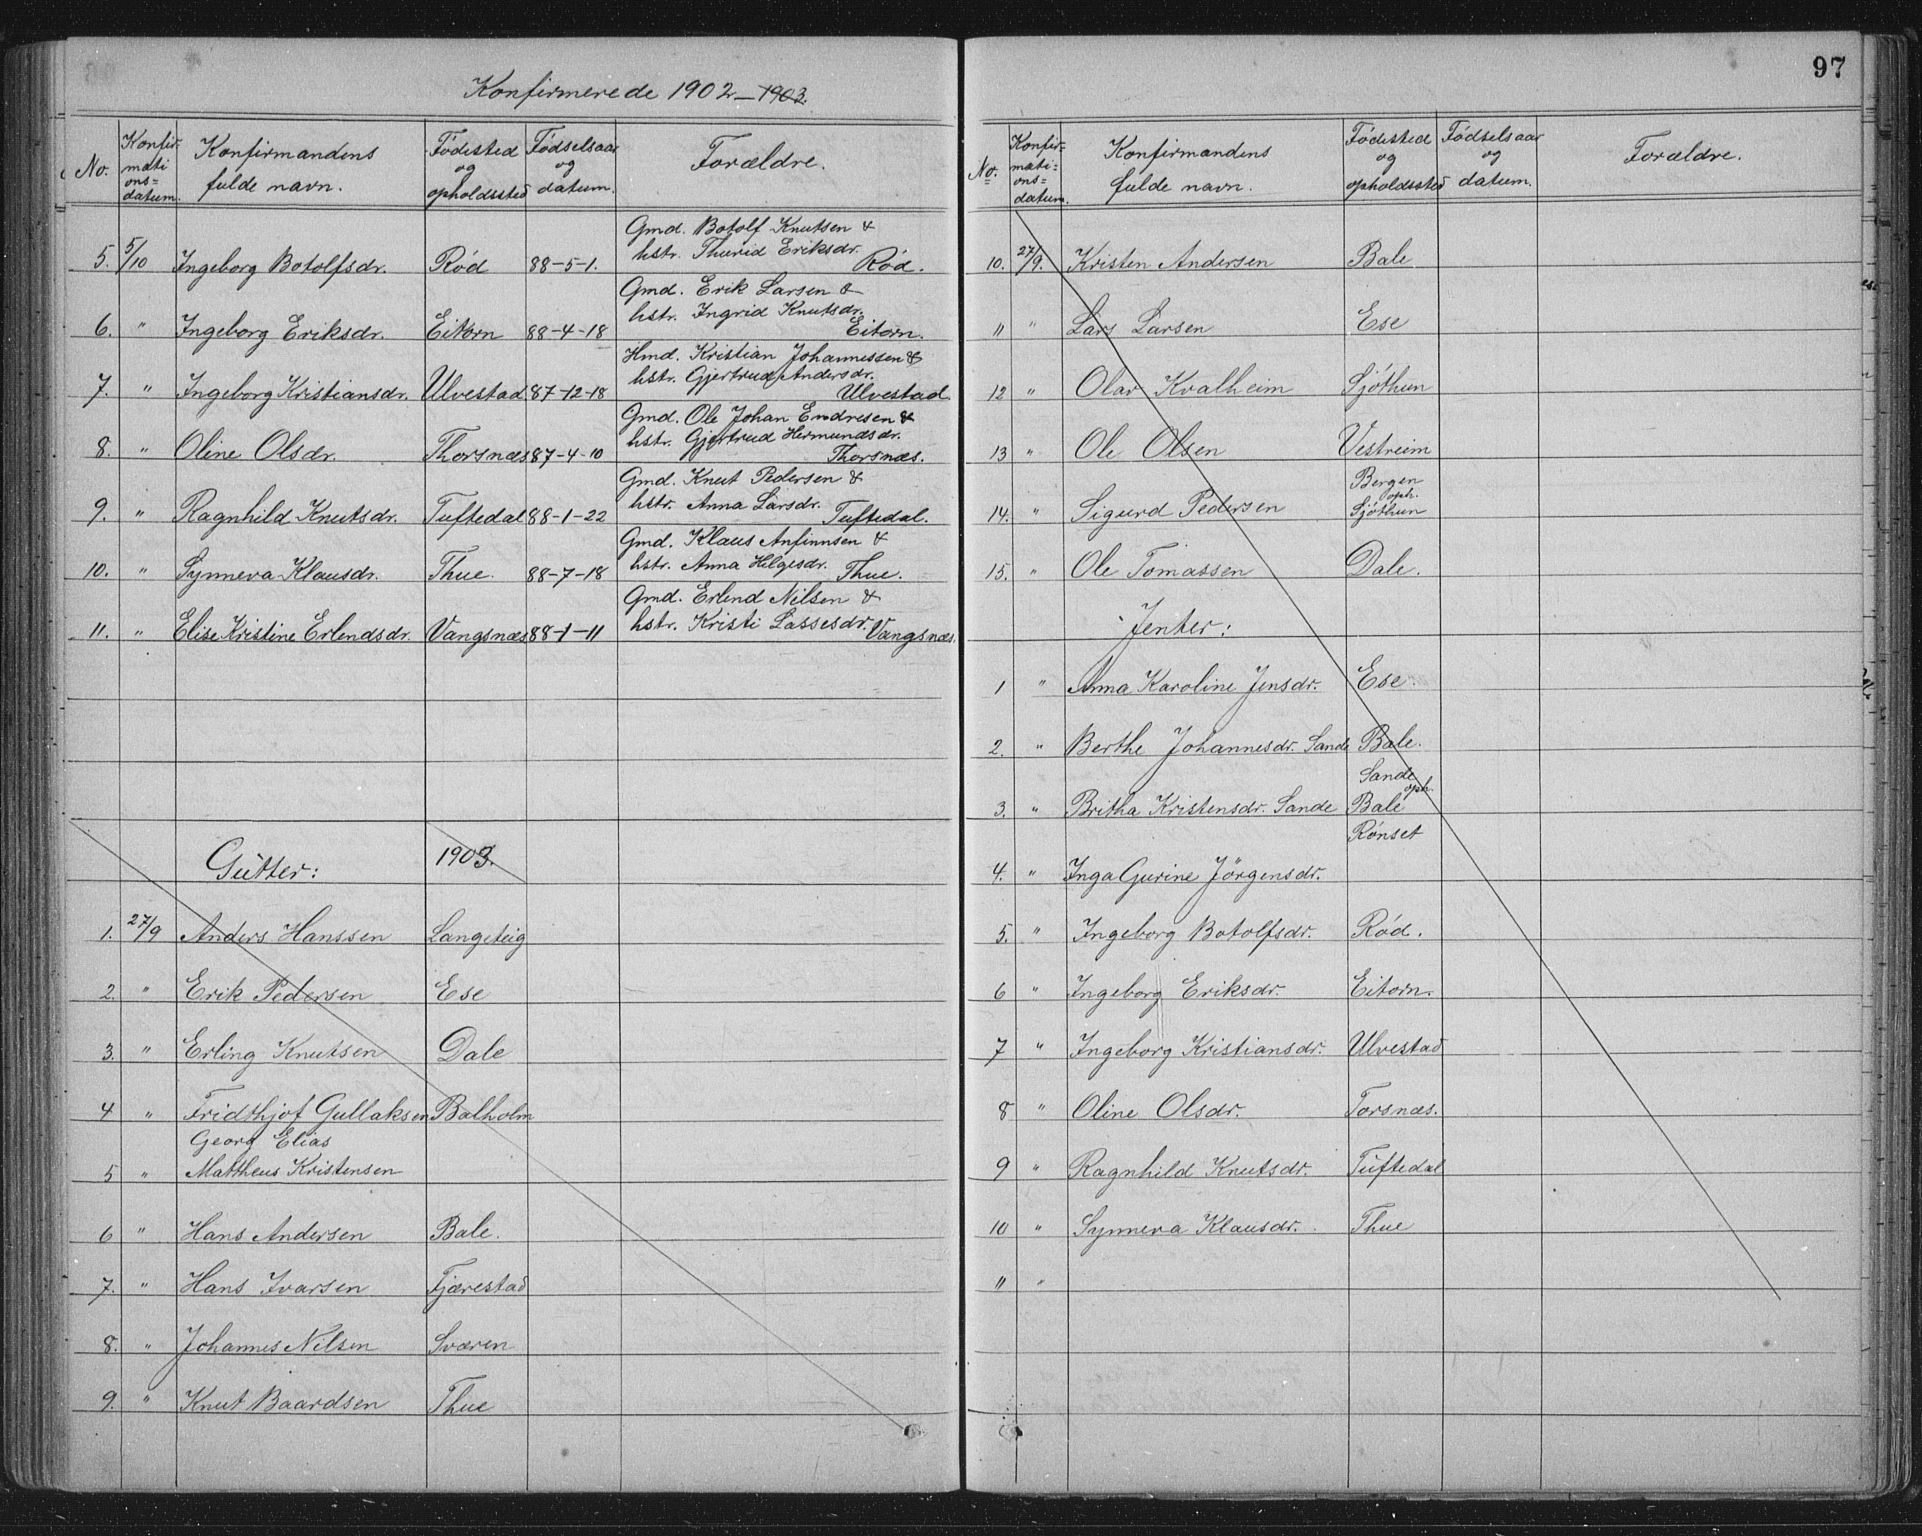 Konfirmerede 1902-1903.
No.
Konfir-
mati
ons=
datum.
Konfirmandens
fulde navn.
Fødested
og
opholdssted
Fødselsaar
og
datum.
Forældre.
Gmd. Botolf Knutsen &
hstr. Thurid Eriksdr.
5. 5/10 Ingeborg Botolfsdr. Rød 88-5-1. Rød.
Gmd. Erik Larsen &
hstr. Ingrid Knutsdr.
6. " Ingeborg Eriksdr. Eitorn 88-4-18 Eitorn.
Hmd. Kristian Johannessen &
hstr. Gjertrud Andersdr.
7. " Ingeborg Kristiansdr. Ulvestad 87-12-18 Ulvestad.
Gmd. Ole Johan Endresen &
hstr. Gjertrud Hermundsdr.
8. " Oline Olsdr. Thorsnæs 87-4-10 Thorsnæs.
Gmd. Knut Pedersen &
hstr. Anna Larsdr.
9. " Ragnhild Knutsdr. Tuftedal 88-1-22 Tuftedal.
Gmd. Klaus Anfinnsen &
hstr. Anna Helgesdr.
10. " Synneva Klausdr. Thue. 88-7-18 Thue.
Gmd. Erlend Nilsen &
hstr. Kristi Lassesdr.
11. " Elise Kristine Erlendsdr. Vangsnæs 88-1-11 Vangsnæs.
Gutter: 1903.
1. 27/9 Anders Hanssen Langeteig
2. " Erik Pedersen Ese
3. " Erling Knutsen Dale
4 " Fridthjof Gullaksen Balholm
Georg Elias
5 " Mattheus Kristensen
6 " Hans Andersen Bale.
7. " Hans Ivarsen Fjærestad
8. " Johannes Nilsen Sværen
9. " Knut Baardsen Thue
97
No.
Konfir=
mati=
ons=
datum.
Konfirmandens
fulde navn.
Fødested
og
opholdssted
Fødselsaar
og
datum.
Forældre.
10. 27/9. Kristen Andersen Bale
11 " Lars Larsen Ese
12 " Olav Kvalheim Sjøthun
13 " Ole Olsen Vestreim
Bergen
oph.
14. " Sigurd Pedersen Sjøthun
15. " Ole Tomassen Dale.
Jenter:
1 " Anna Karoline Jensdr. Ese.
2. " Berthe Johannesdr. Sande Bale.
Sande
oph.
3. " Britha Kristensdr. Sande Bale
Rønset
4. " Inga Gurine Jörgensdr.
5. " Ingeborg Botolfsdr. Rød.
6 " Ingeborg Eriksdr. Eitorn.
7 " Ingeborg Kristiansdr. Ulvestad
8 " Oline Olsdr. Torsnæs.
9 " Ragnhild Knutsdr. Tuftedal
10 " Synneva Klausdr. Thue
11 "